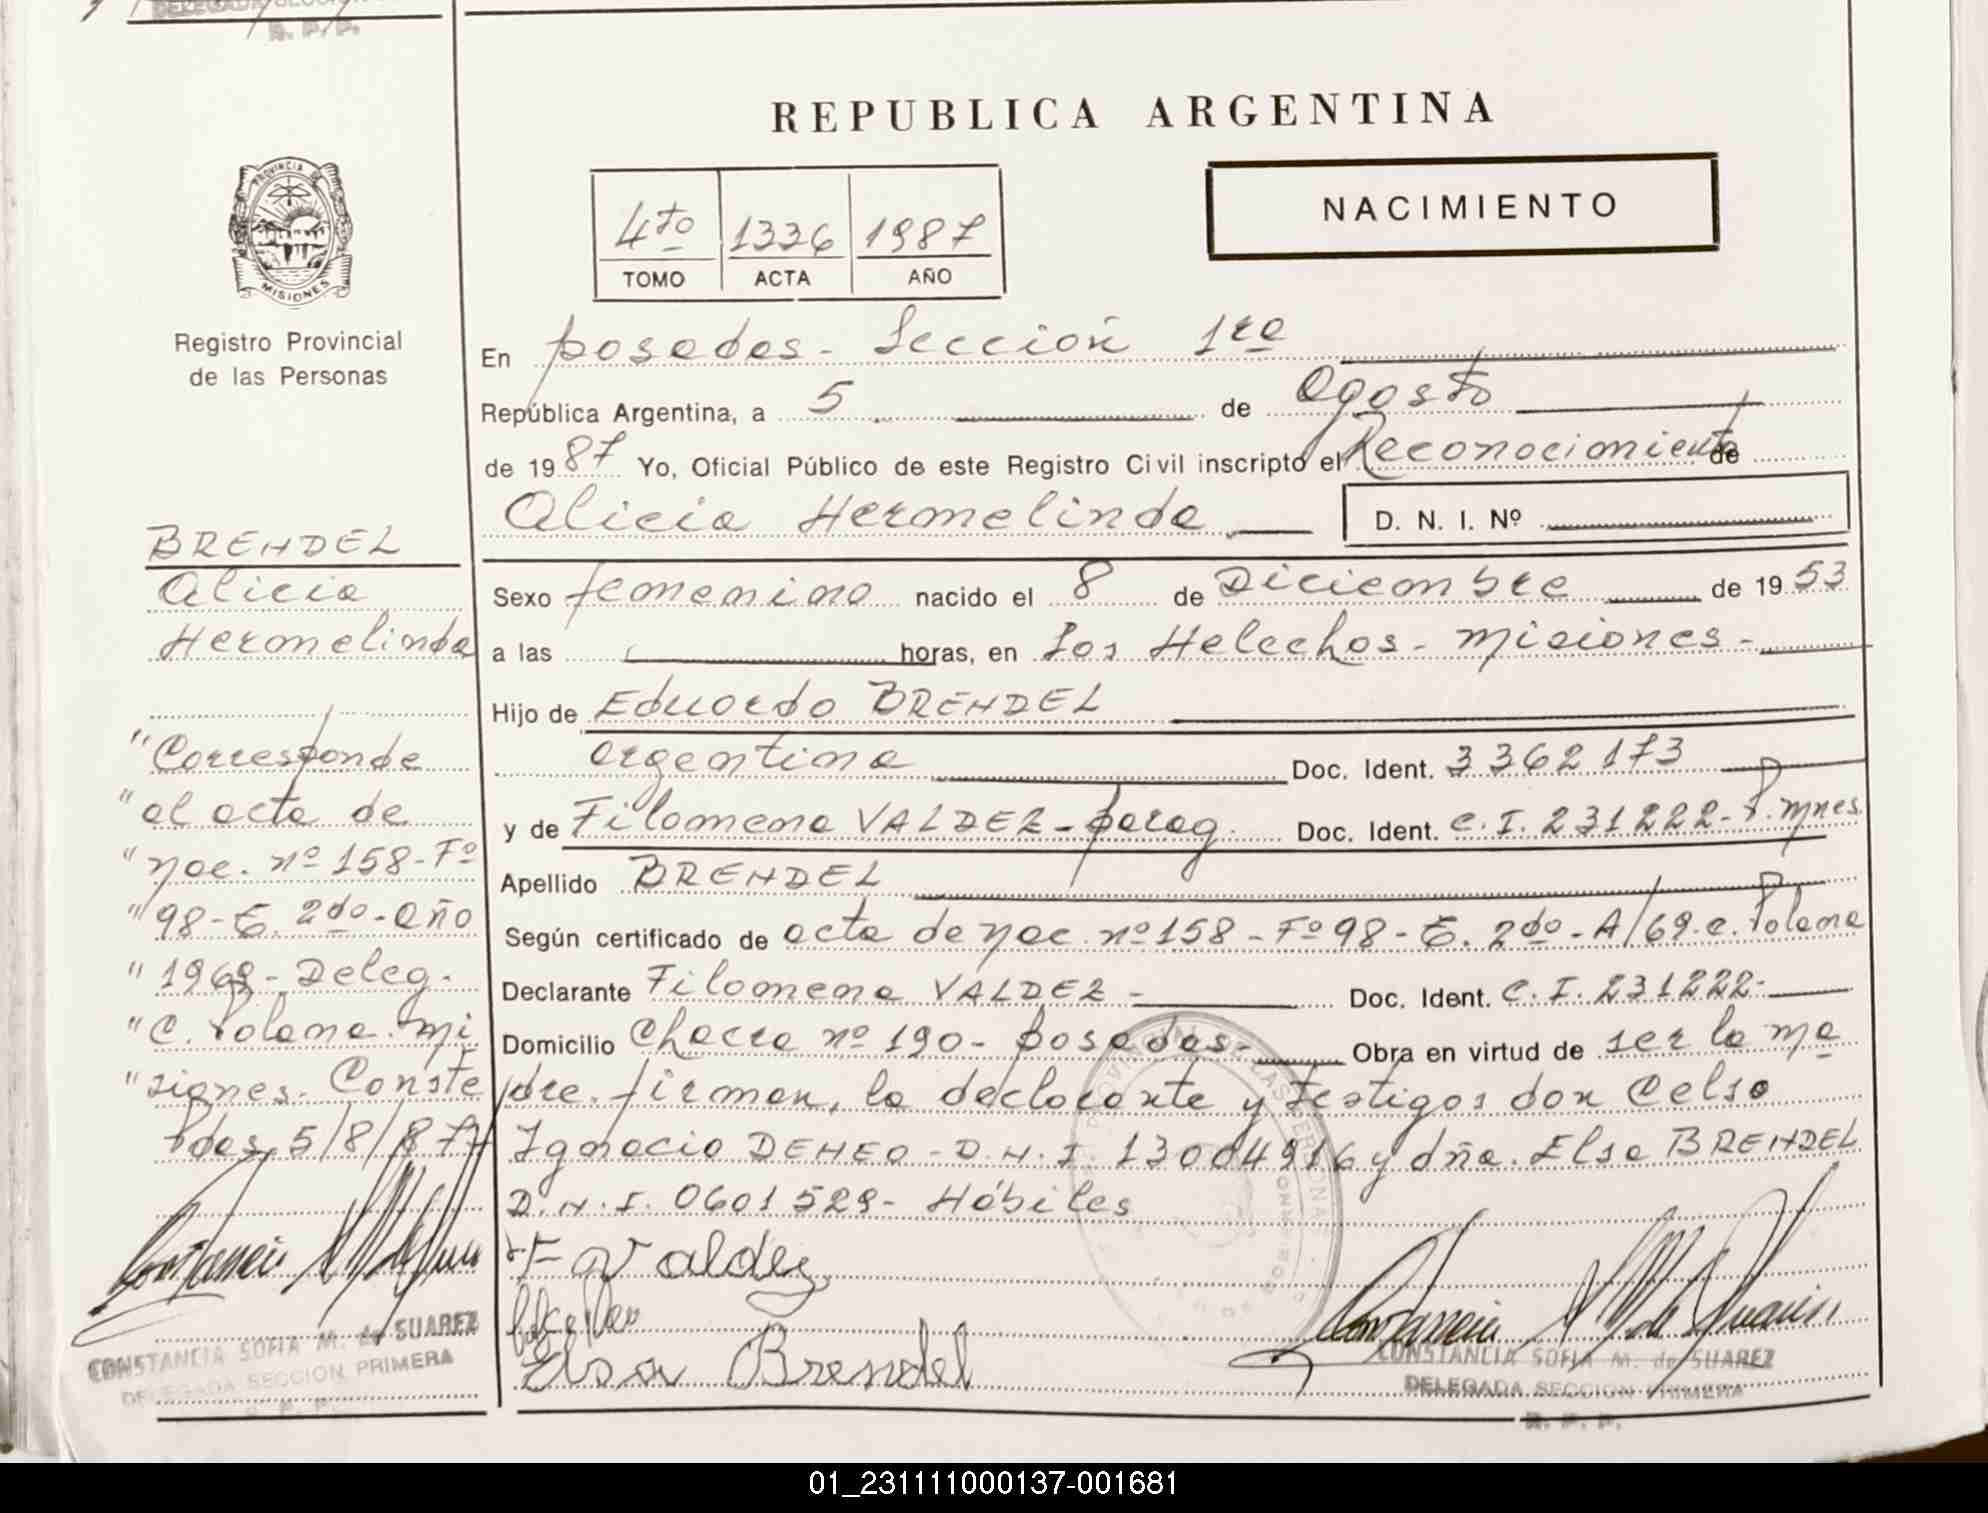 DELEGADA SECCION
R. P. P.
REPUBLICA ARGENTINA
PROVINCIA DE
MISIONES
Registro Provincial
de las Personas
4to 1336 1987
TOMO ACTA AÑO
NACIMIENTO
En Posadas - Sección 1ra
República Argentina, a 5 de Agosto
de 1987 Yo, Oficial Público de este Registro Civil inscripto el Reconocimiento de
Alicia Hermelinda D. N. I. Nº
Sexo femenino nacido el 8 de Diciembre de 1953
a las horas, en Los Helechos - Misiones -
Hijo de Eduardo BRENDEL
argentina Doc. Ident. 3362173
y de Filomena VALDEZ - parag. Doc. Ident. C. I. 231222 - P. Mnes.
Apellido BRENDEL
Según certificado de acta de nac. nº 158 - Fº 98 - T. 2do - A/69. C. Polana
Declarante Filomena VALDEZ - Doc. Ident. C. I. 231222 -
Domicilio Chacra nº 190 - Posadas - Obra en virtud de ser la ma
dre. firman, la declarante y testigos don Celso
Ignacio DENEO - D. N. I. 13004916 y dña. Elsa BRENDEL
D. N. I. 0601529 - Hábiles
F Valdez
Elsa Brendel
CONSTANCIA SOFIA M. de SUAREZ
DELEGADA SECCION PRIMERA
R. P. P.
BRENDEL
Alicia
Hermelinda
"Corresponde
"al acta de
"nac. nº 158 - Fº
"98 - T. 2do - año
"1969 - Deleg.
"C. Polana. Mi
"siones. Conste
Pdas. 5/8/87
CONSTANCIA SOFIA M. de SUAREZ
DELEGADA SECCION PRIMERA
R. P. P.
01_231111000137-001681